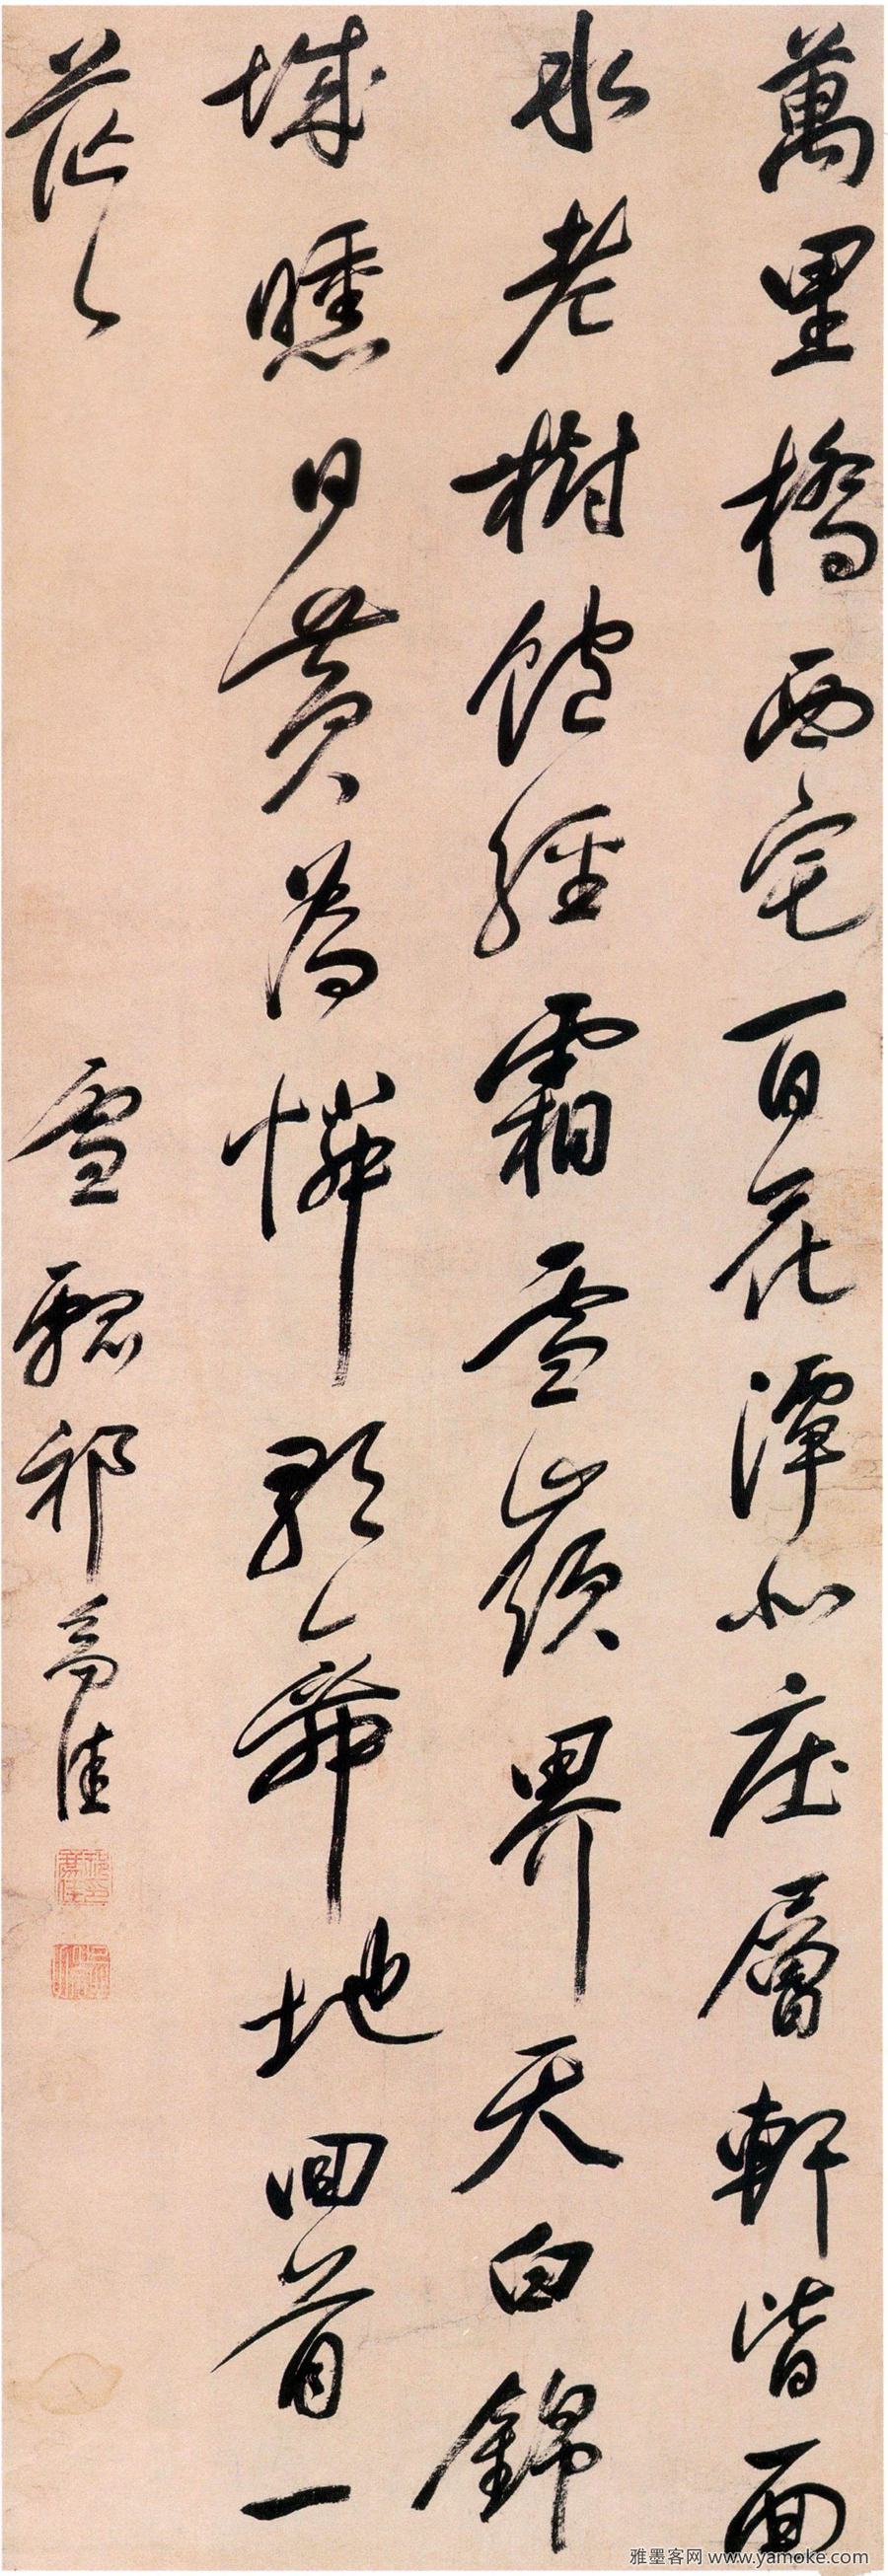 萬里橋西宅百花潭北庄層軒皆面
水老樹飽經霜雪嶺界天白錦
城曛日黃為憐歌舞地回首一
茫〻
雪瓢祁豸佳
雅墨客网 www.yamoke.com